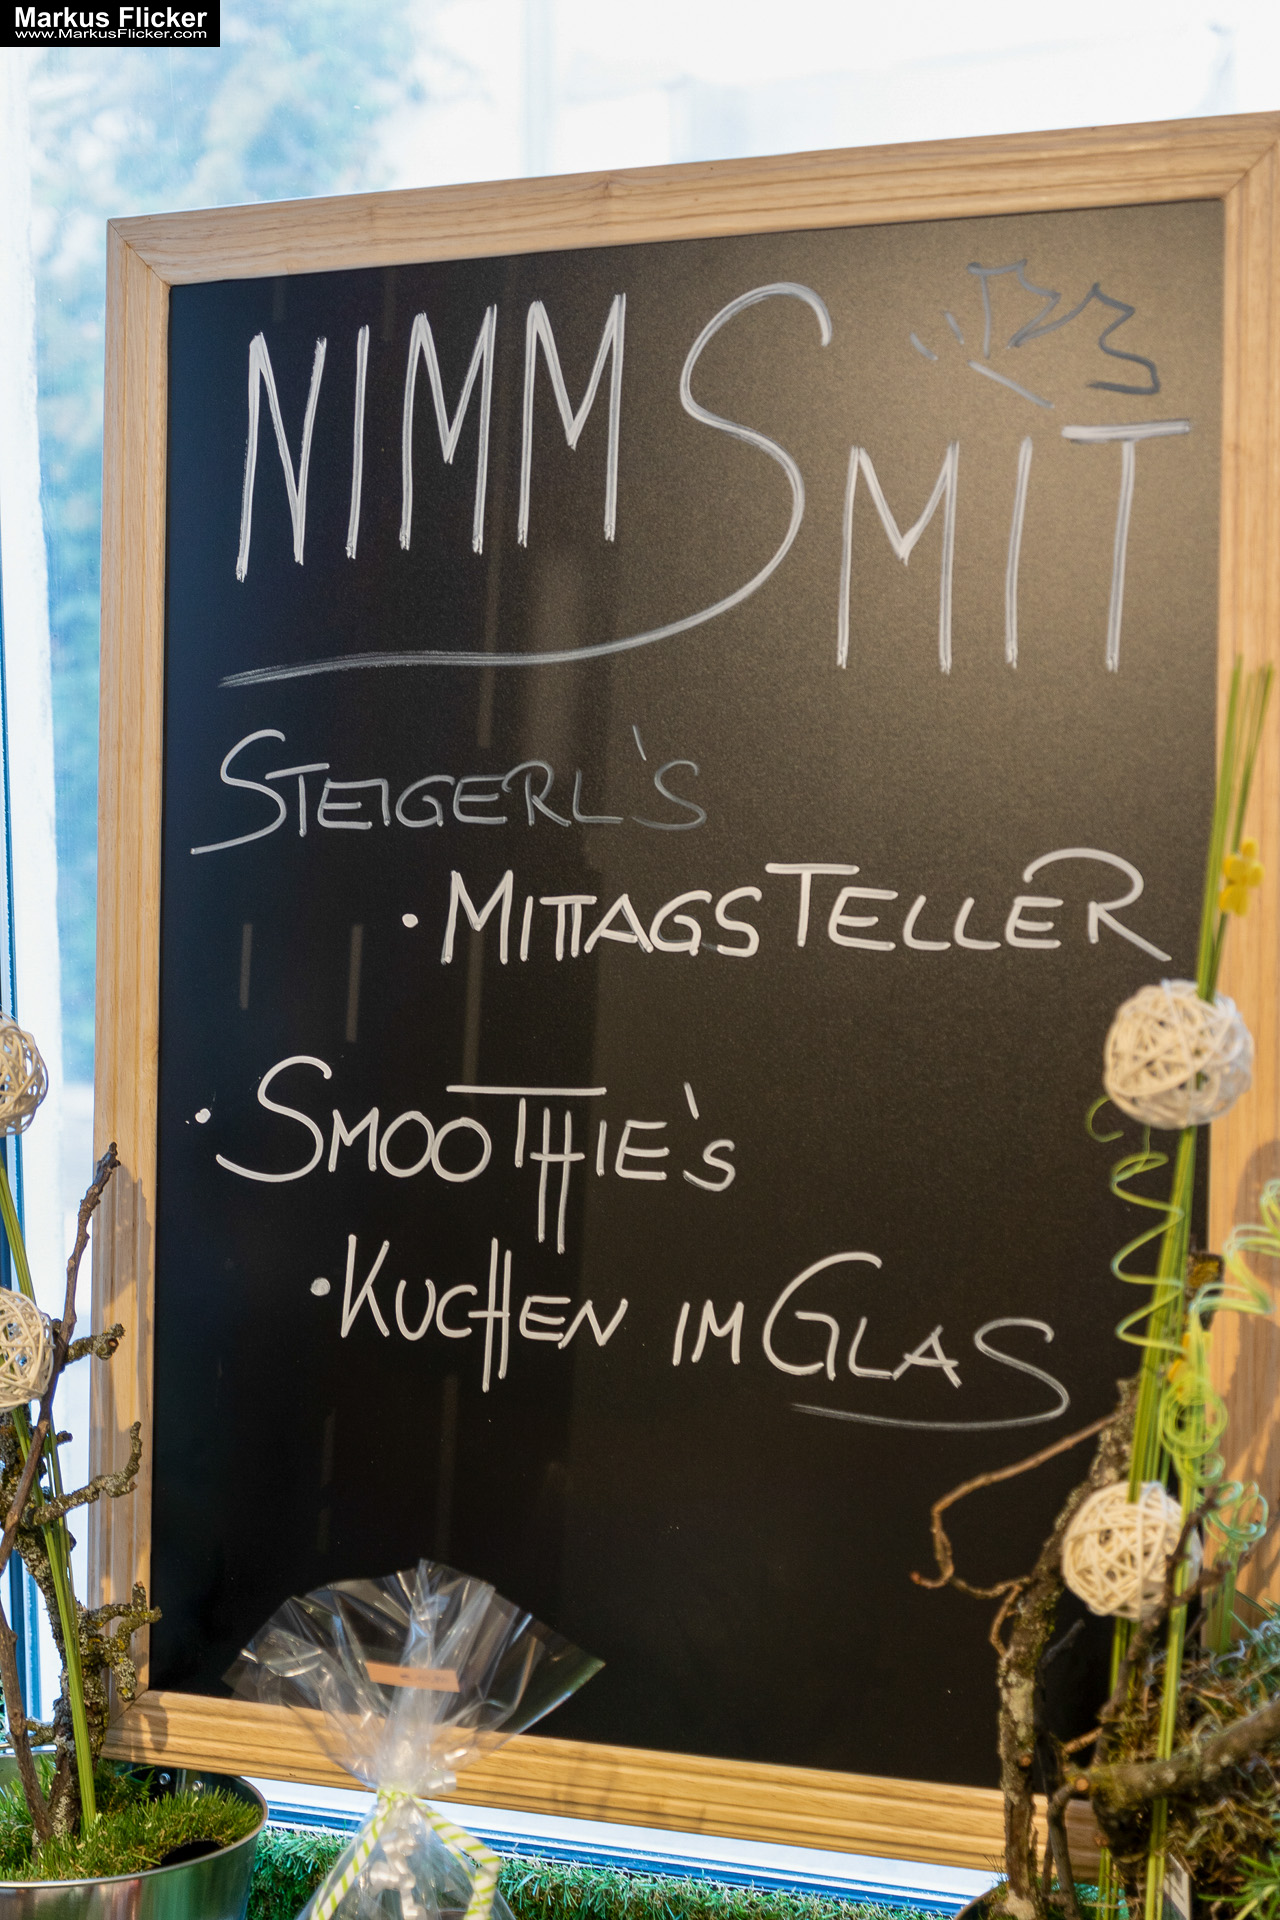 Markus Flicker
www.MarkusFlicker.com
NIMMS MIT
STEIGERL'S
• MITTAGSTELLER
• SMOOTHIE'S
• KUCHEN IM GLAS